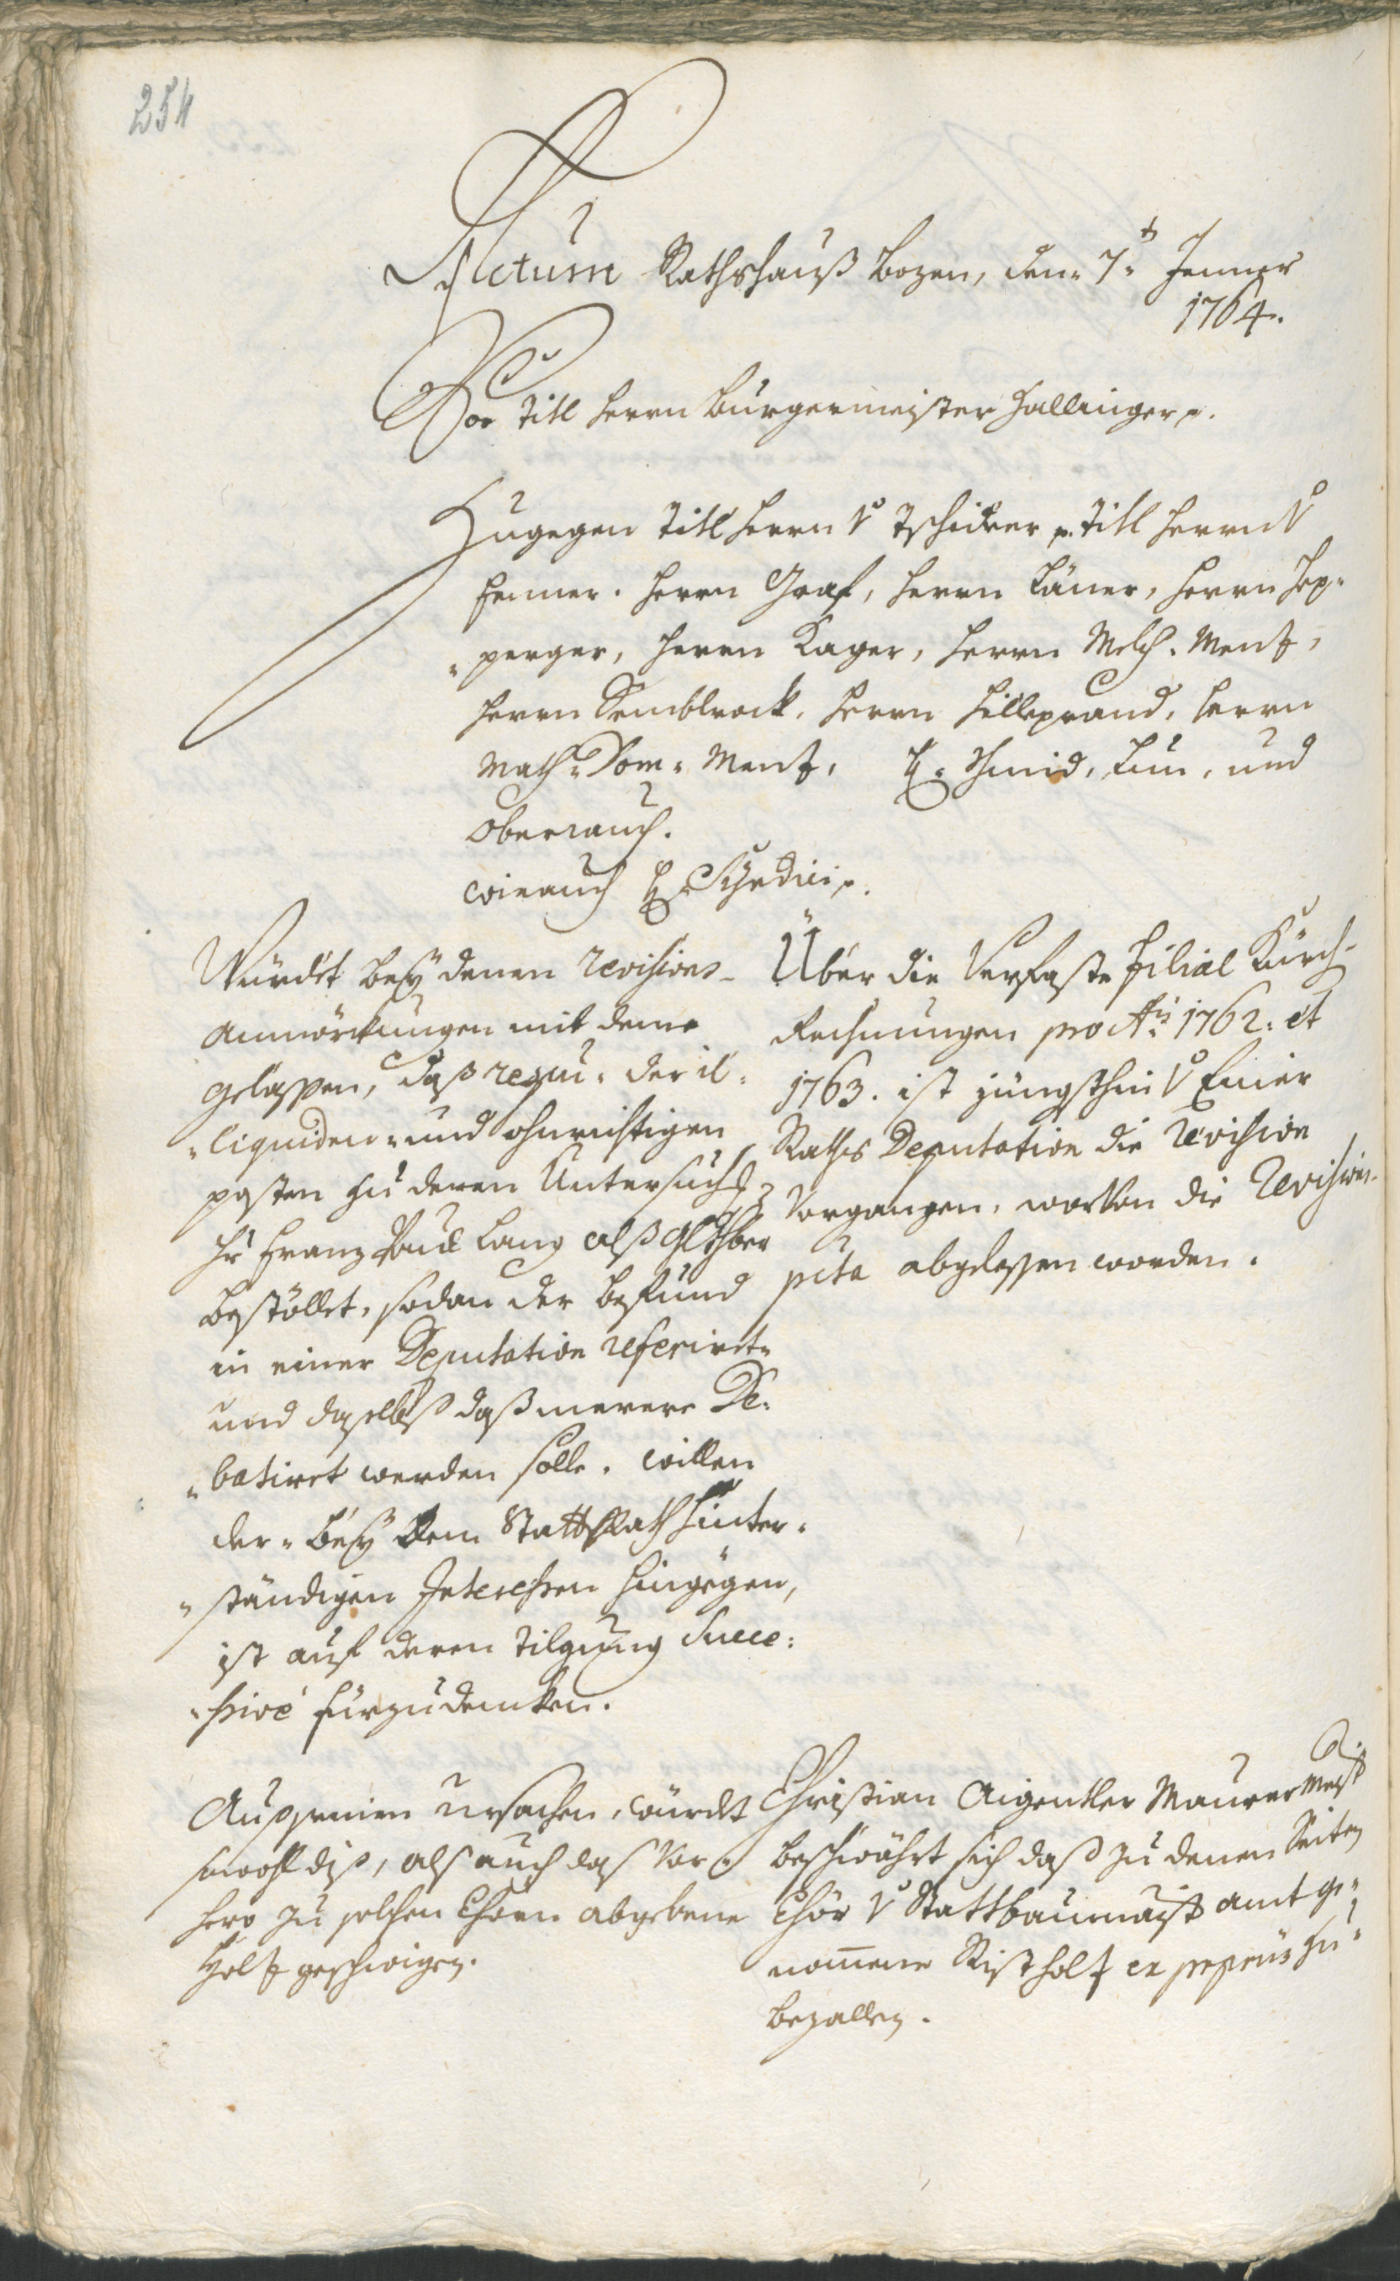 254
Actum Rathshauß Bozen, den 7t Jenner
1764.
Vor Titl Herrn Burgermeister Hallinger p.
Zugegen Titl Herrn v Tschiderer p. Titl Herrn v
Fenner. Herrn Graf, Herrn Täner, Herrn Hep-
perger, Herrn Kager, Herrn Melch. Menz,
Herrn Semblrock, Herrn Hilleprand, Herrn
Math: Dom: Menz, H: Schmid, Lun, und
Oberrauch.
wie auch H: Syndici p.
Würdet bey denen revisions-
Anmörckungen mit deme
gelassen, daß der il-
liquiden- und ohnrichtigen
posten zu deren Untersuch
Hr Franz Paul Lang alß
bestöllet, sodan der Befund
in einer Deputation referirt
und daselbst daß merere De-
batiret werden solle. willen
der- bey dem Statt Rath hinter-
ständigen Interessen hingögen,
ist auf deren Tilgung Succe-
ssivè fürzudencken.
Über die Verfaste Filial Kürch-
Rechnungen pro Ais 1762. et
1763. ist jüngsthin v Einer
Raths Deputation die revision
Vorgangen, worvon die Revisions-
pcta abgelessen worden.
Aus ursachen, würdet
sowohl diß, als auch das vor-
hero zu solchen Chören abgebene
Holz geschwigen.
Christian Aigentler Maurer Maist
beschwährt sich daß zu denen Seiten
Chör v Stattbaumaist amt ge-
nomene Rist holz ex propriis zu
bezallen.